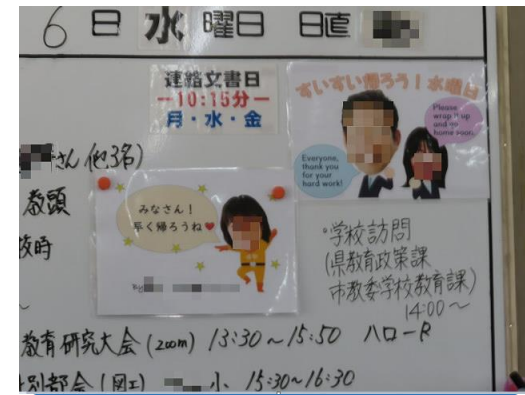 6日 水曜日 日直
連絡文書日
ー10:15分ー
月・水・金
すいすい帰ろう!水曜日
Please
wrap it up
and go
home soon.
Everyone,
thank you
for your
hard work!
さん他3名)
教頭
みなさん!
早く帰ろうね♥
By
校時
・学校訪問
(県教育政策課
市教委学校教育課)
14:00〜
教育研究大会(zoom) 13:30〜15:50 ハロード
別部会(図工 小 15:30〜16:30